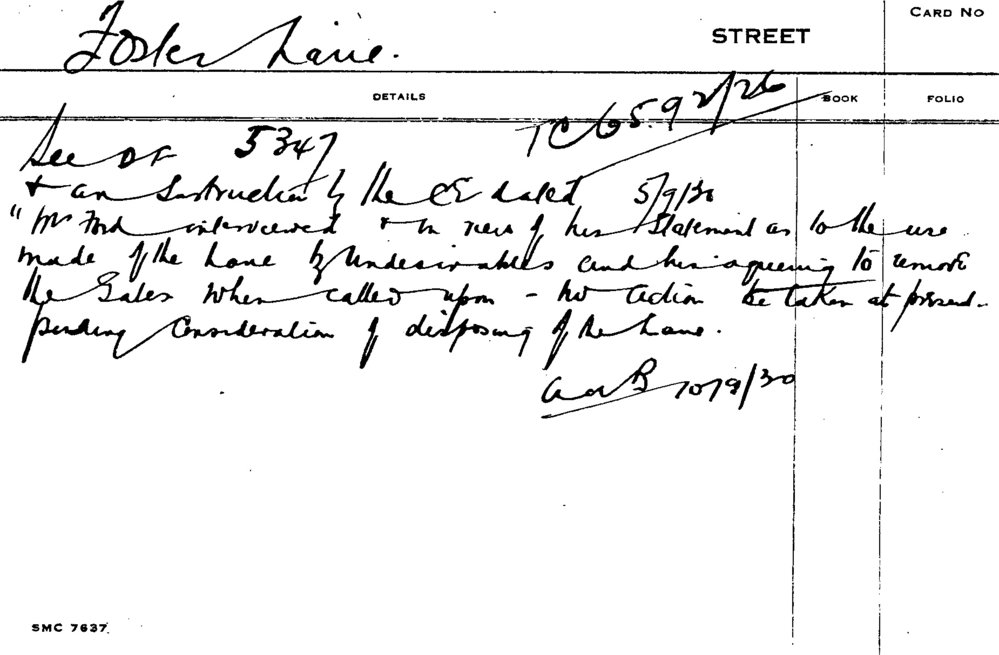 CARD NO
Foster Lane. STREET
DETAILS BOOK FOLIO
TC 659 2/26
See DF 5347
+ an Instruction by the CE dated 5/9/30
"Mr Ford interviewed + in view of his Statement as to the use
made of the Lane by Undesirables and his agreeing to remove
the Gates when called upon - no action be taken at present -
pending Consideration of disposing of the Lane.
10/9/30
SMC 7637